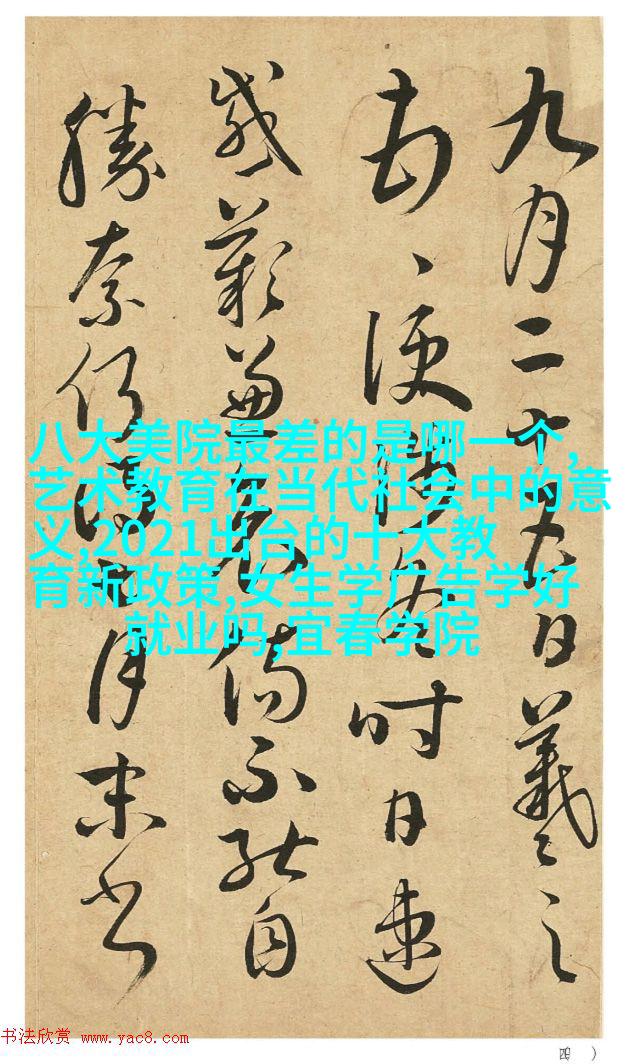 九月二十日羲之
便陟冬時日速
感歎兼哀傷不能自
勝奈何得月末書
八大美院最差的是哪一个,
艺术教育在当代社会中的意
义,2021出台的十大教
育新政策,女生学广告学好
就业吗,宜春学院
书法欣赏 www.yac8.com
四 )